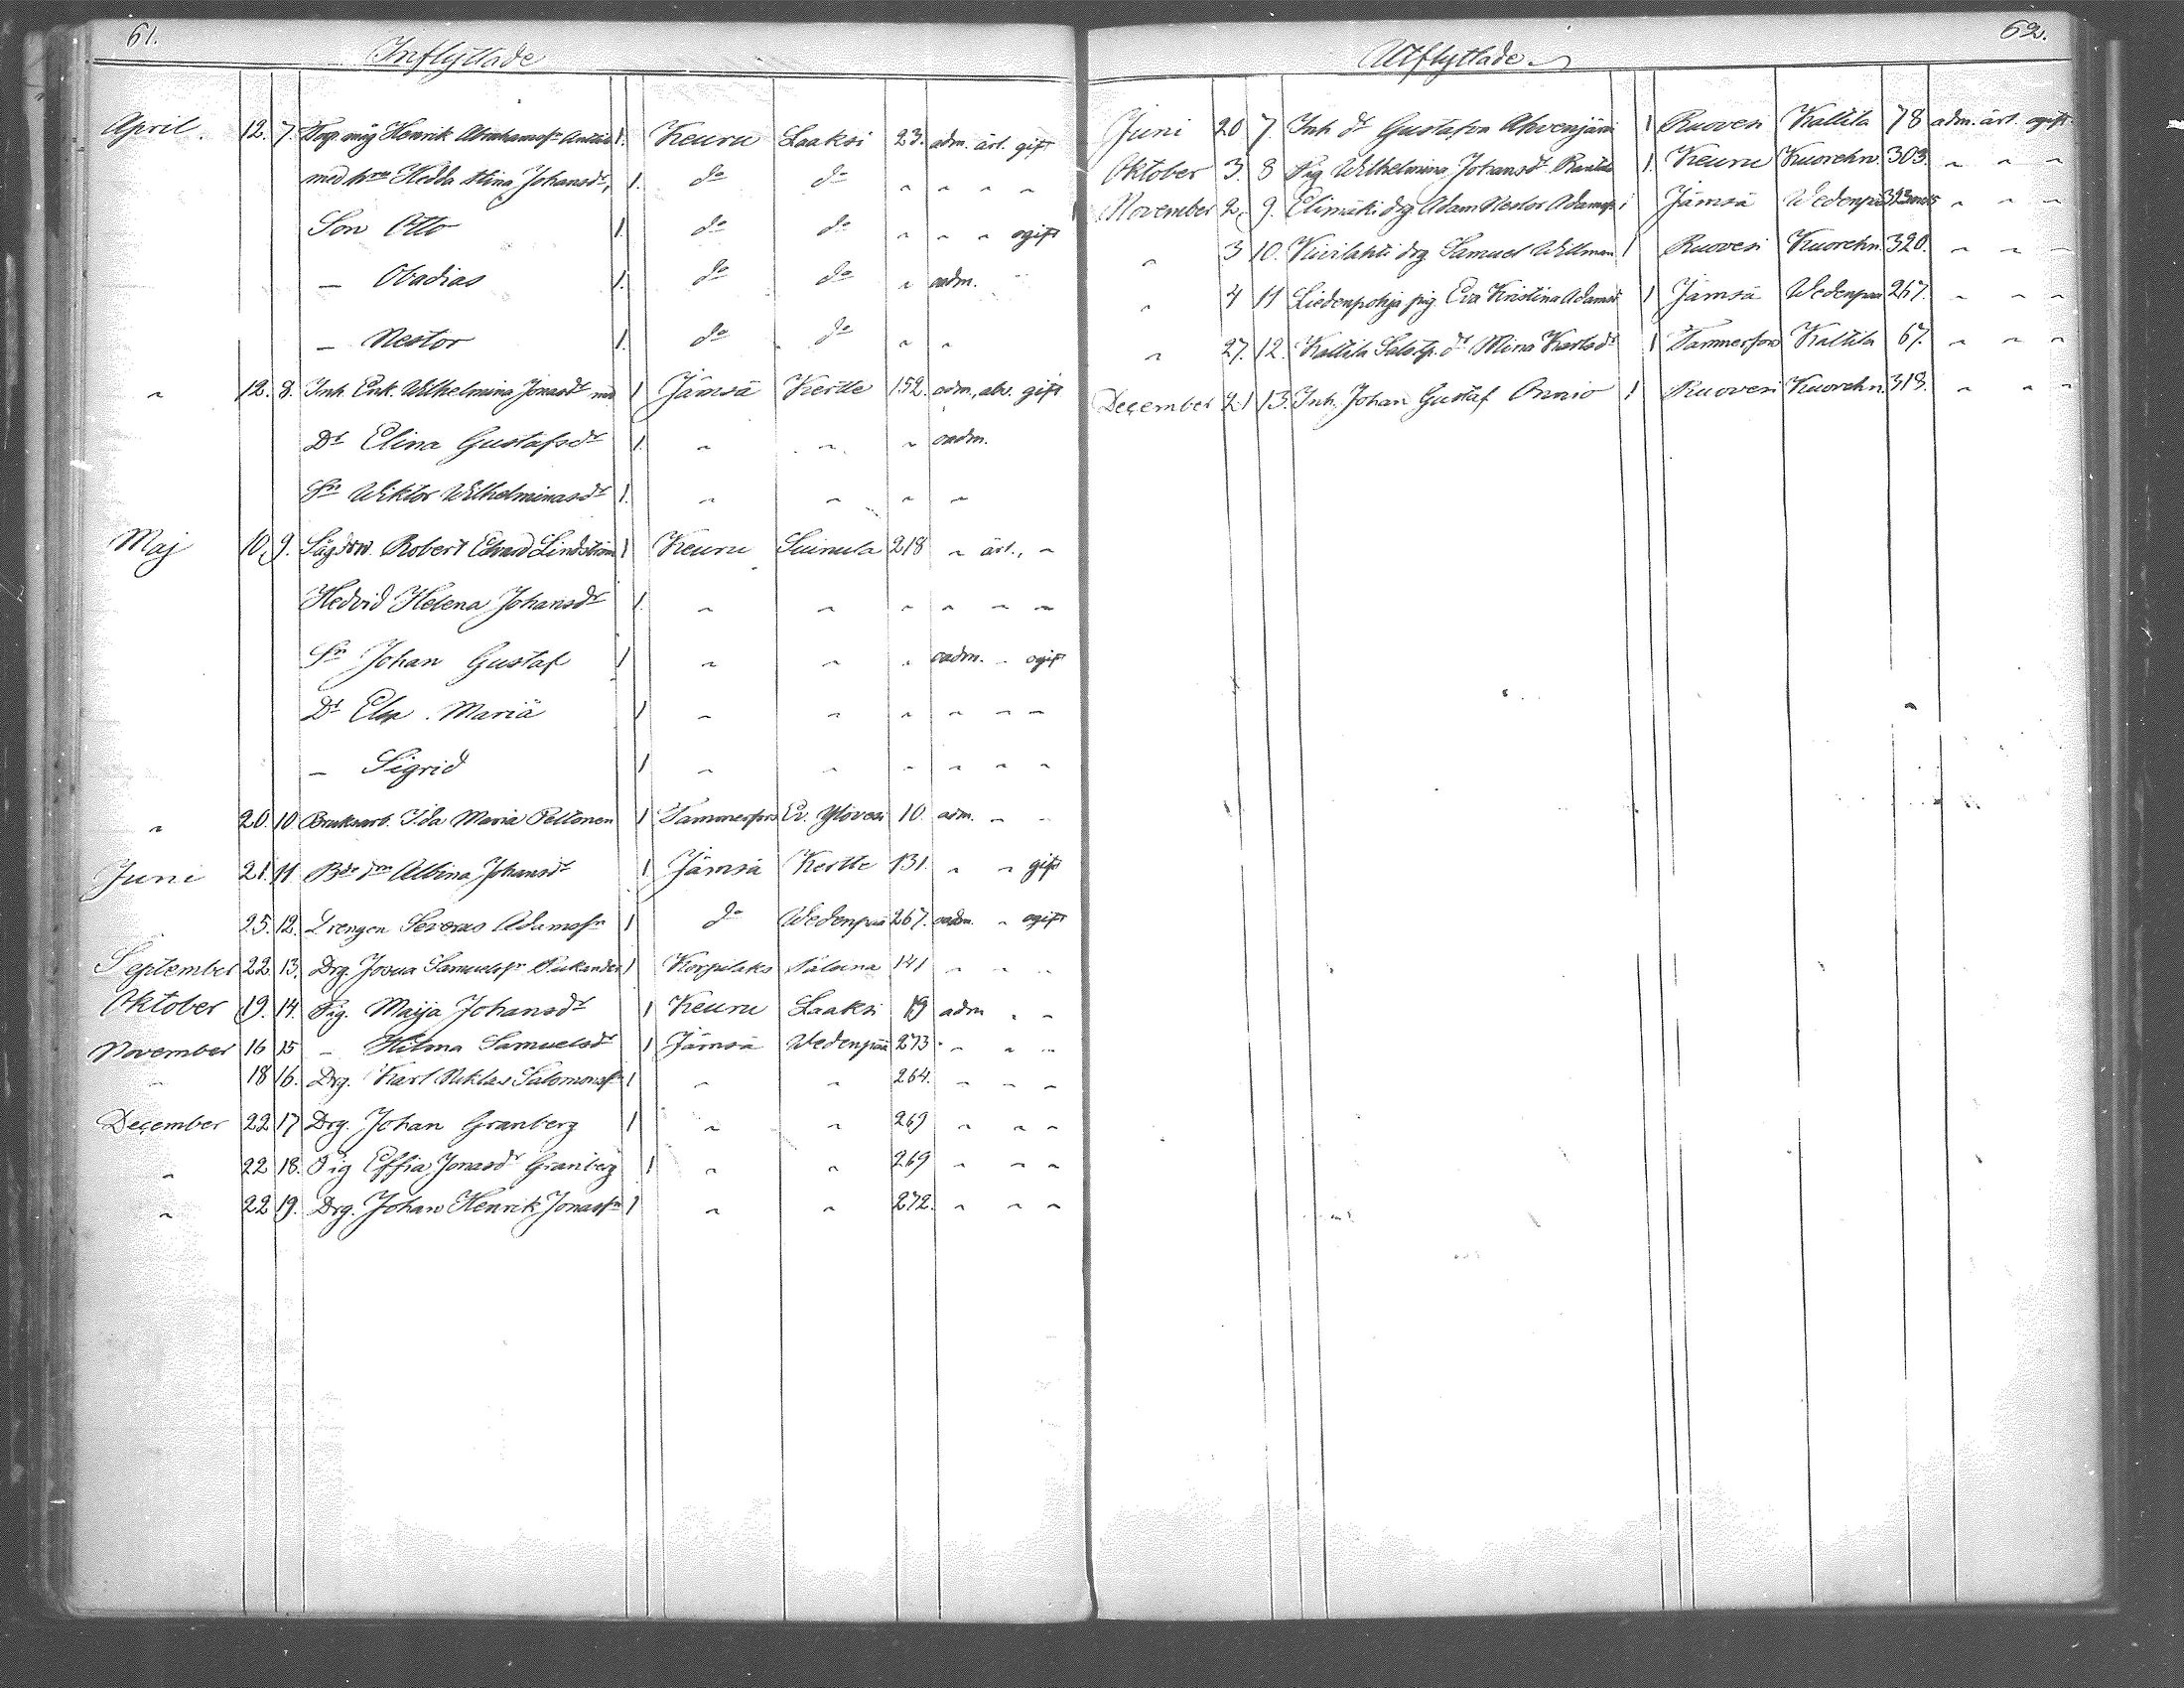 61.
Inflyttade
April. 12. 7. Torp. måg Henrik Abrahamsson 1. Keuru Laaksi 23. adm. ärl. gift
med hru Hedda Stina Johansdr, 1. do do " " " "
Son Otto 1. do do " " " ogift
— Obadias 1. do do " oadm. "
— Nestor 1. do do " "
" 12. 8. Inh. Enk. Wilhelmina Jonasdr med 1 Jämsä Kertte 152. adm., abs. gift
Dr Elina Gustafsdr 1. " " " oadm.
Sn Wiktor Wilhelminasdr 1. " " " "
Maj 10. 9. Robert Edvard Lindström 1 Keuru Suinula 218 " ärl., "
Hedvid Helena Johansdr 1. " " " " " "
Sn Johan Gustaf 1 " " " oadm. " ogift
Dr Elsa Mariä 1 " " " " " "
— Sigrid 1 " " " " " "
" 20. 10. Bruksarb. Ida Maria Peltonen 1 Tammerfors Ev. Ylövesi 10. adm. " "
Juni 21. 11 Albina Johansdr 1. Jämsä Kertte 131. " " gift
25. 12. Drengen Severus Adamsson 1 do Wedenpää 267. oadm. " ogift
September 22. 13. Drg. Josua Samuelsson Pukander 1 Korpilaks 141 " " "
Oktober 19. 14. Pig. Maija Johansdr 1 Keuru Laaksi 19 adm " "
November 16 15 — Hilma Samuelsdr 1 Jämsä Wedenpää 273. " " "
" 18 16. Drg. Karl Niklas Salomonsson 1 " " 264. " " "
December 22 17 Drg. Johan Granberg 1 " " 269 " " "
" 22 18. Pig Effia Jonasdr Granberg 1 " " 269 " " "
" 22 19. Drg. Johan Henrik Jonasson 1 " " 272. " " "
62.
Utflyttade
Juni 20 7. Inh. dr Gustafva Ahvenjärvi 1 Ruovesi Kattila 78 adm. ärl. ogift
Oktober 3. 8 Pig Wilhelmina Johansdr 1. Keuru Kuorehn. 303. " " "
November 2. 9. Elimäki drg. Adam Nestor Adamsson 1 Jämsä Wedenpää " " "
" 3 10. Kivilahti drg Samuel Willman 1 Ruovesi Kuorehn. 320. " " "
" 4 11 Liedenpohja pig. Eva Kristina Adamsdr 1 Jämsä Wedenpää 267. " " "
" 27. 12. Kattila dr Mina Karlsdr 1 Tammerfors Kattila 67. " " "
December 21 13. Inh. Johan Gustaf Onnio 1 Ruovesi Kuorehn. 318. " " "